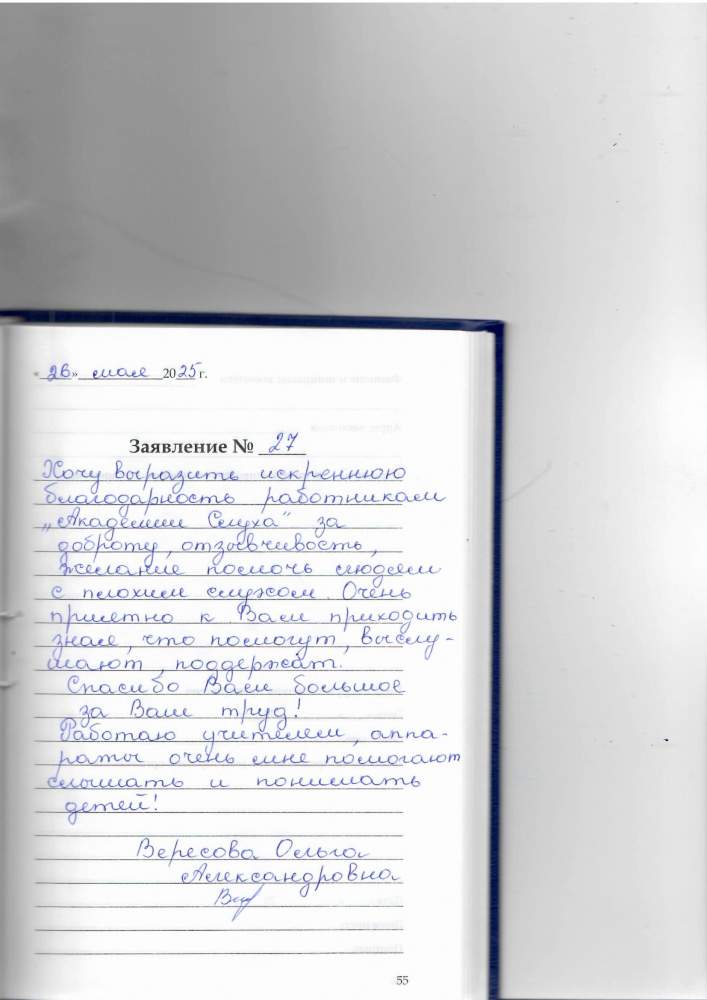 «26» мая 2025 г.
Заявление № 27
Хочу выразить искреннюю
благодарность работникам
„Академии Слуха" за
доброту, отзывчивость,
желание помочь людям
с плохим слухом. Очень
приятно к Вам приходить
зная, что помогут, выслу-
шают, поддержат.
Спасибо Вам большое
за Ваш труд!
Работаю учителем, аппа-
раты очень мне помогают
слышать и понимать
детей!
Вересова Ольга
Александровна
55